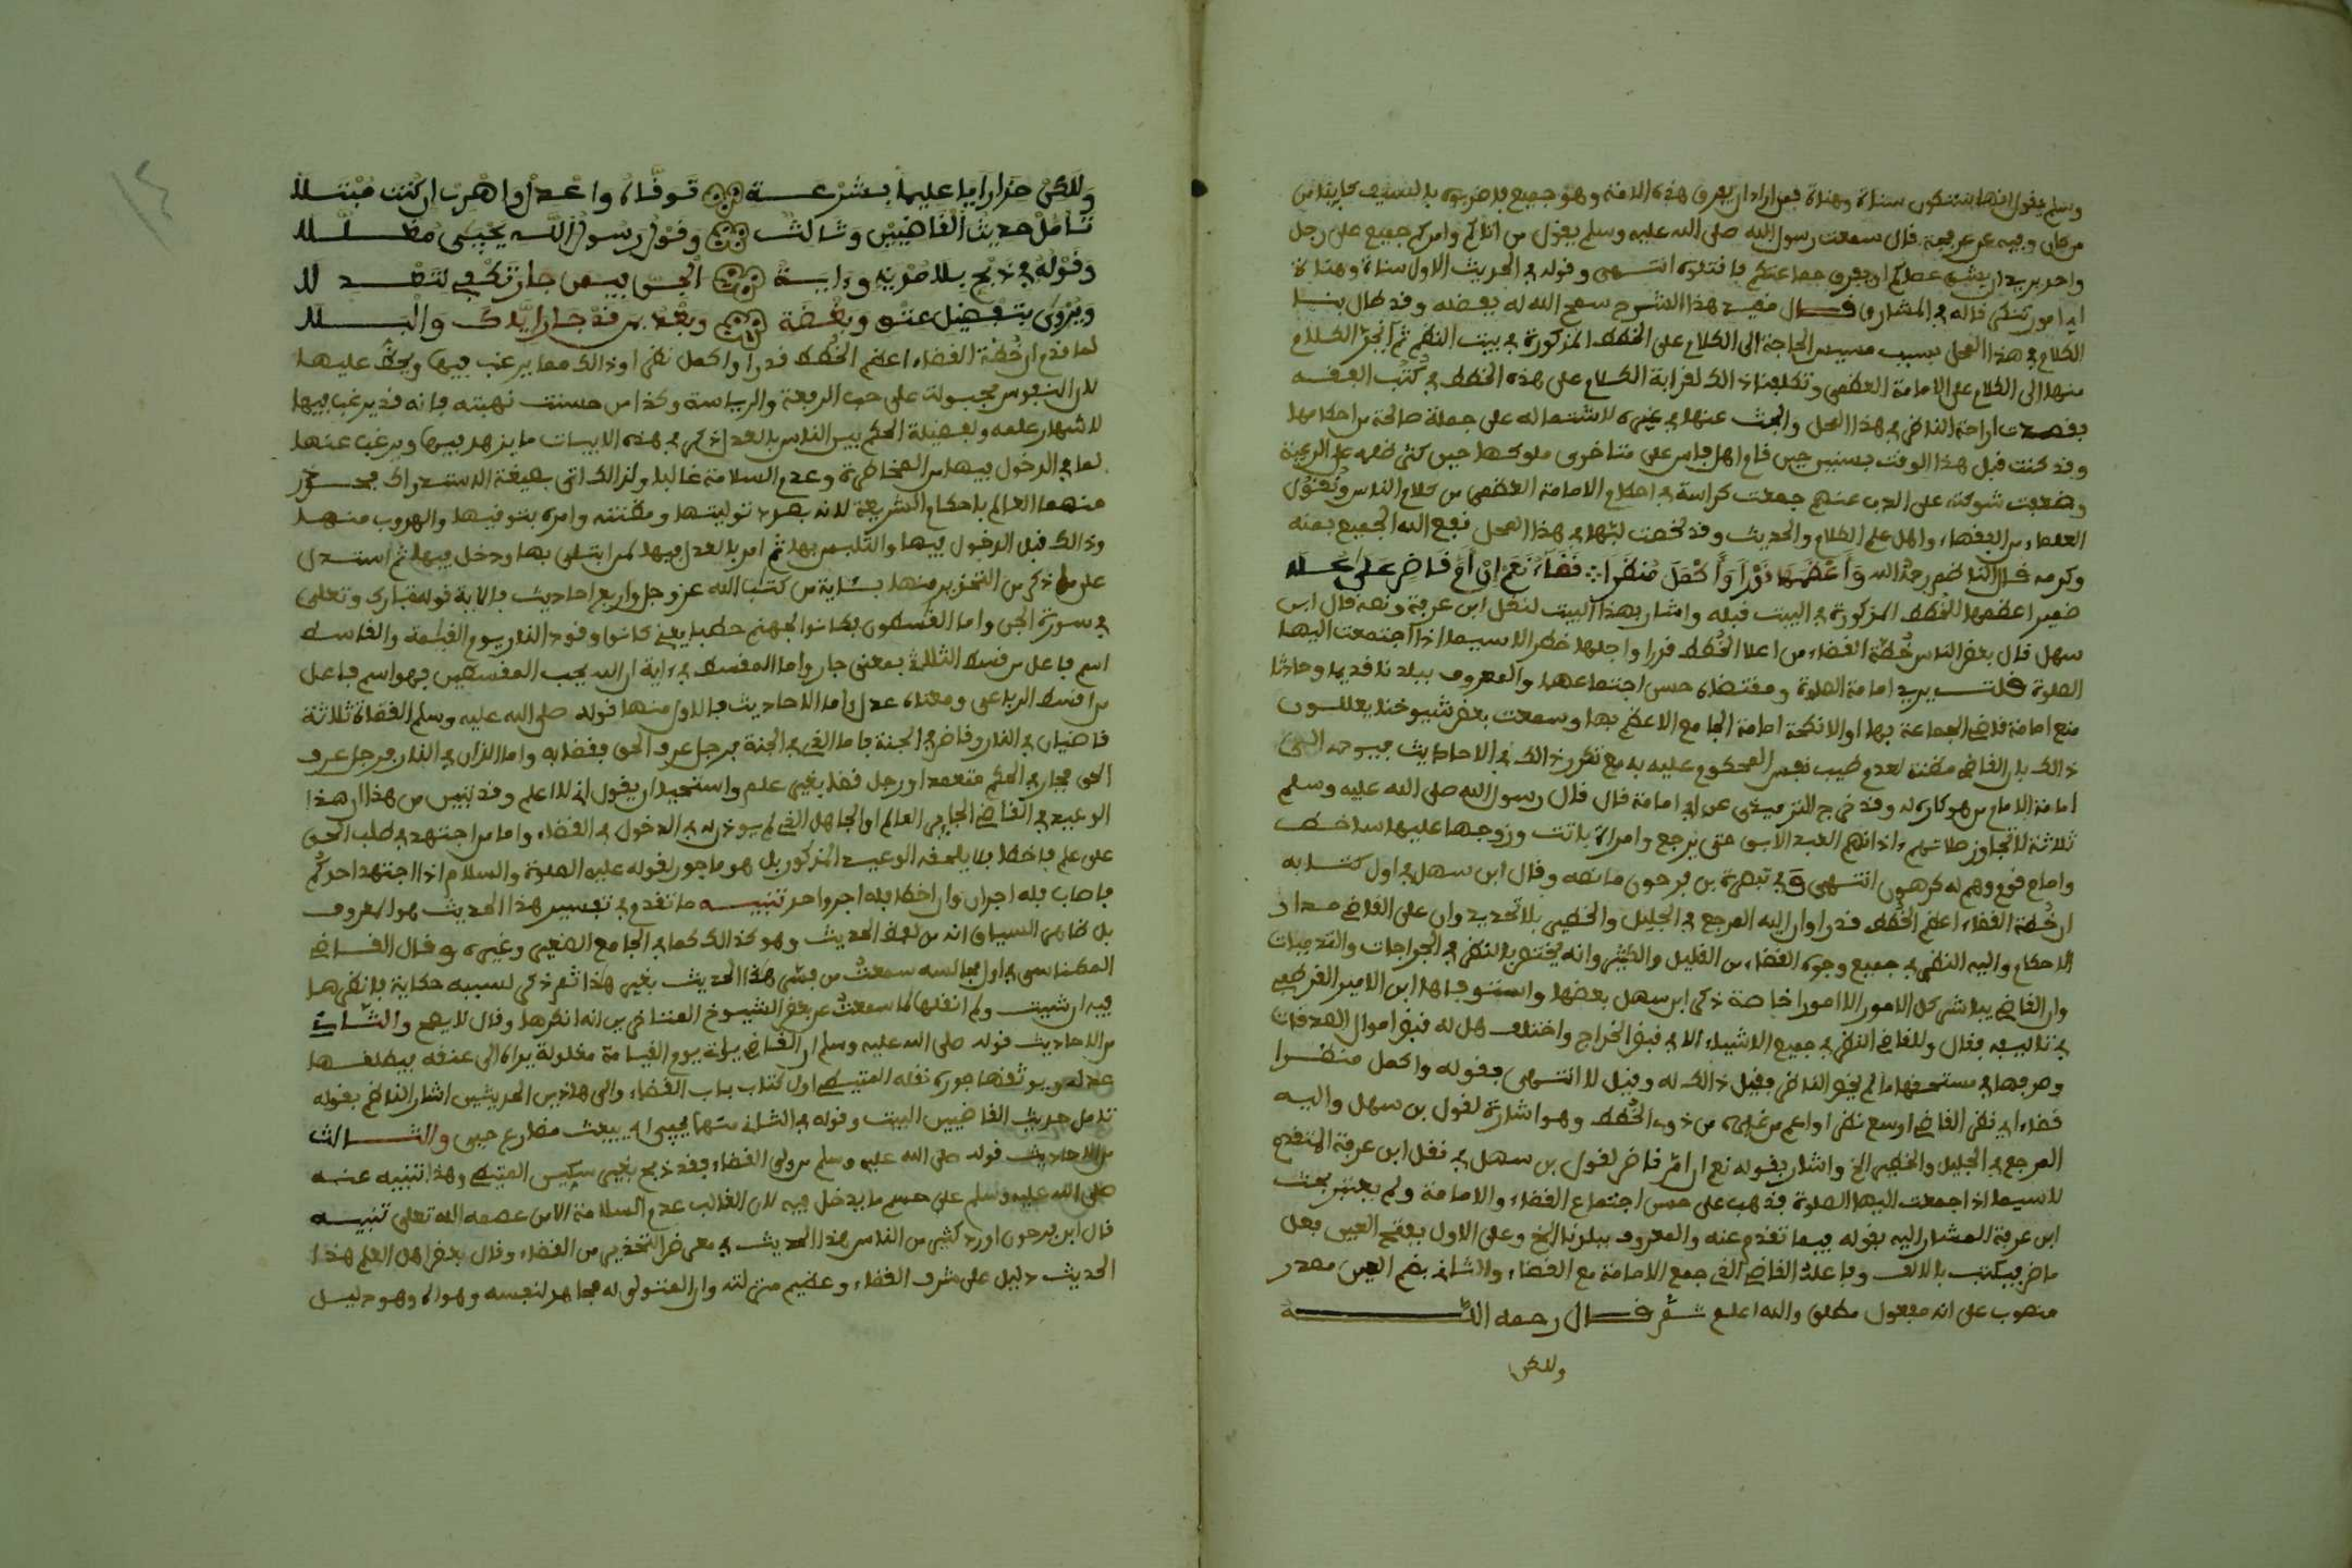 وسلم يقول انها ستكون هناة وهناة فمن اراد ان يفرق هذه الامة وهو جميع فاضربوه بالسيف كاينا من
من كان وفيه عن عرفجة قال سمعت رسول الله صلى الله عليه وسلم يقول من اتاكم وامركم جميع على رجل
واحد يريد ان يشق عصاكم او يفرق جماعتكم فاقتلوه انتهى وقوله في الحديث الاول هناة وهناة
اي امور تنكر قاله في المشارق قال مقيد هذا الشرح سمح الله له بفضله وقد طال بنا
الكلام في هذا المحل بسبب مسيس الحاجة الى الكلام على الخطط المذكورة في بيت النظم ثم انجر الكلام
منها الى الكلام على الامامة العظمى وتكلفنا ذالك لغرابة الكلام على هذه الخطط في كتب الفقه
فقصدت اراحة الناظر في هذا المحل والبحث عنها في غيره لاشتماله على جملة صالحة من احكامها
وقد كنت قبل هذا الوقت بسنين حين قام اهل فاس على متاخرى ملوكها حين كثر ظلمه على الرعية
وضعفت شوكته على الذب عنهم جمعت كراسة في احكام الامامة العظمى من كلام الناس ونقول
العلماء من الفقهاء واهل علم الكلام والحديث وقد لخصت لبها في هذا المحل نفع الله الجميع بمنه
وكرمه قال الناظم رحمه الله وَأَعْظَمُهَا قَدْرًا وَأَكْمَلَ مَنْظَرًا ؞ قَضَاءٌ نَعَمْ إِنْ أَمَّ قَاضٍ عَلَى عَلا
ضمير اعظمها للخطط المذكورة في البيت قبله واشار بهذا البيت لنقل ابن عرفة ونصه قال ابن
سهل قال بعض الناس خُطّة القضاء من اعلا الخطط قدرا واجلها خطرا لاسيما اذا اجتمعت اليها
الصلوة قلت يريد امامة الصلوة ومقتضاه حسن اجتماعهما والمعروف ببلدنا قديما وحادثا
منع امامة قاضي الجماعة بها او الانكحة امامة الجامع الاعظم بها وسمعت بعض شيوخنا يعللون
ذالك بان القاضي مظنة لعدم طيب نفس المحكوم عليه به مع تكرر ذالك في الاحاديث
امامة الامام من هو كاره له وقد خرج الترمذي عن ابي امامة قال قال رسول الله صلى الله عليه وسلم
ثلاثة لا تجاوز صلاتهم ءاذانهم العبد الآبق حتى يرجع وامراة باتت وزوجها عليها ساخط
وامام قوم وهم له كرهون انتهى وفي تبصرة بن فرحون ما نصه وقال ابن سهل في اول كتابه
ان خطة القضاء اعظم الخطط قدرا وان اليه المرجع في الجليل والحقير بلا تحديد وان على القاضي مدار
الاحكام واليه النظر في جميع وجوه القضاء من القليل والكثير وانه يختص بالنظر في الجراحات والتدميات
وان القاضي يباشر كل الامور الا امورا خاصة ذكر ابن سهل بعضها واستوفاها ابن الامير القرطبي
في تاليفه فقال وللقاضي النظر في جميع الاشياء الا في قبض الخراج واختلف هل له قبض اموال الصدقات
وصرفها في مستحقها ما لم يحضر الناظر فقيل ذالك له وقيل لا انتهى فقوله واكمل منظرا
قضاء اي نظر القاضي اوسع نظرا واعم من غيره من ذوى الخطط وهو اشارة لقول بن سهل واليه
المرجع في الجليل والحقير الخ واشار بقوله نعم ان امّ قاض لقول بن سهل في نقل ابن عرفة المتقدم
لاسيما اذا اجمعت اليها الصلوة فذهب على حسن اجتماع القضاء والامامة ولم يعتبر بحث
ابن عرفة المشار اليه بقوله فيما تقدم عنه والمعروف ببلدنا الخ وعلى الاول بفتح العين فعل
ماض فيكتب بالالف وفاعله القاضي الذي جمع الامامة مع القضاء والثاني بضم العين مصدر
منصوب على انه مفعول مطلق والله اعلم ثم قال رحمه الله
ولكن
وَلَكِنْ حَذَارِ اَيَا عليما بشرعة تَوقَّاهُ واعْدلْ واهْربْ ان كُنت مُبْتَلا
تَاَملْ حديث القَاضِيَيْن وثالث وقوْل رسُول اللَّه يَجِيءُ مغلَّلا
وقَوْلهُ في ذبْح بلا مُدْية وءَايَةُ الْجنّ فيمن جار تَكْفي لتَعْدِلا
ويُرْوَى بتفضيل عتْو وبغْضَة وبُعْد من قدْ جار ايَّاكَ وَالْبَلا
لما قدم ان خُطة القضاء اعظم الخُطط قدرا واكمل نظرا وذالك مما يرغب فيها ويحض عليها
لان النفوس مجبولة على حب الرفعة والرياسة وكذا من حسنت نهيته فانه قد يرغب فيها
لاشهار علمه ولفضيلة الحكم بين الناس بالعدل ذكر في هذه الابيات ما يزهد فيها ويرغب عنها
لما في الدخول فيها من المخاطرة وعدم السلامة غالبا ولذالك اتى بصيغة الاستدراك فحذر
منها العالم باحكام الشريعة لانه بصدد توليتها ومظنته وامره بتوقيها والهروب منها
وذالك قبل الدخول فيها والتلبس بها ثم امر بالعدل فيها لمن ابتلى بها ودخل فيها ثم استدل
على ما ذكر من التحذير منها بئاية من كتاب الله عز وجل واربع احاديث فالاية قوله تبارك وتعلى
في سورة الجن واما القسطون فكانوا لجهنم حطبا يعني كانوا وقود النار يوم القيامة والقاسط
اسم فاعل من قسط الثلاثي بمعنى جار واما المقسط في ءاية ان الله يحب المقسطين فهو اسم فاعل
من اقسط الرباعي ومعناه عدل واما الاحاديث فالاول منها قوله صلى الله عليه وسلم القضاة ثلاثة
قاضيان في النار وقاض في الجنة فاما الذي في الجنة فرجل عرف الحق فقضا به واما اللذان في النار فرجل عرف
الحق فجار في الحكم متعمدا ورجل قضا بغير علم واستحيا ان يقول اني لا اعلم وقد تبين من هذا ان هذا
الوعيد في القاضي الجاير العالم او الجاهل الذي لم يوذن له في الدخول في القضاء واما من اجتهد في طلب الحق
على علم فاخطا فلا يلحقه الوعيد المذكور بل هو ماجور لقوله عليه الصلوة والسلام اذا اجتهد احدكم
فاصاب فله اجران وان اخطا فله اجر واحد تنبيه ما تقدم في تفسير هذا الحديث هو المعروف
بل ظاهر السياق انه من لفظ الحديث وهو كذالك كما في الجامع الصغير وغيره وقال القاضي
المكناسي في اول مجالسه سمعتُ من فسّر هذا الحديث بغير هذا ثم ذكر لسببه حكاية فانظرها
فيه ان شيت ولم انقلها لما سمعتُ عن بعض الشيوخ المتاخرين انه انكرها وقال لا يصح والثاني
من الاحاديث قوله صلى الله عليه وسلم ان القاضي ياتي يوم القيامة مغلولة يداه الى عنقه فيطلقها
عدله ويوثقها جوره نقله المتيطي اول كتاب باب القضاء والى هاذين الحديثين اشار الناظم بقوله
تامل حديث القاضيين البيت وقوله في الثاني منهما يجيء اي يبعث مضارع جيء والثالث
من الاحاديث قوله صلى الله عليه وسلم من ولي القضاء فقد ذبح بغير سكين المتيطي وهذا تنبيه عنه
صلى الله عليه وسلم على حسم ما يدخل فيه لان الغالب عدم السلامة الا من عصمه الله تعلى تنبيه
قال ابن فرحون اورد كثير من الناس هذا الحديث في معرض التحذير من القضاء وقال بعض اهل العلم هذا
الحديث دليل على شرف القضاء وعظيم منزلته وان المتولى له مجاهد لنفسه وهواه وهو دليل